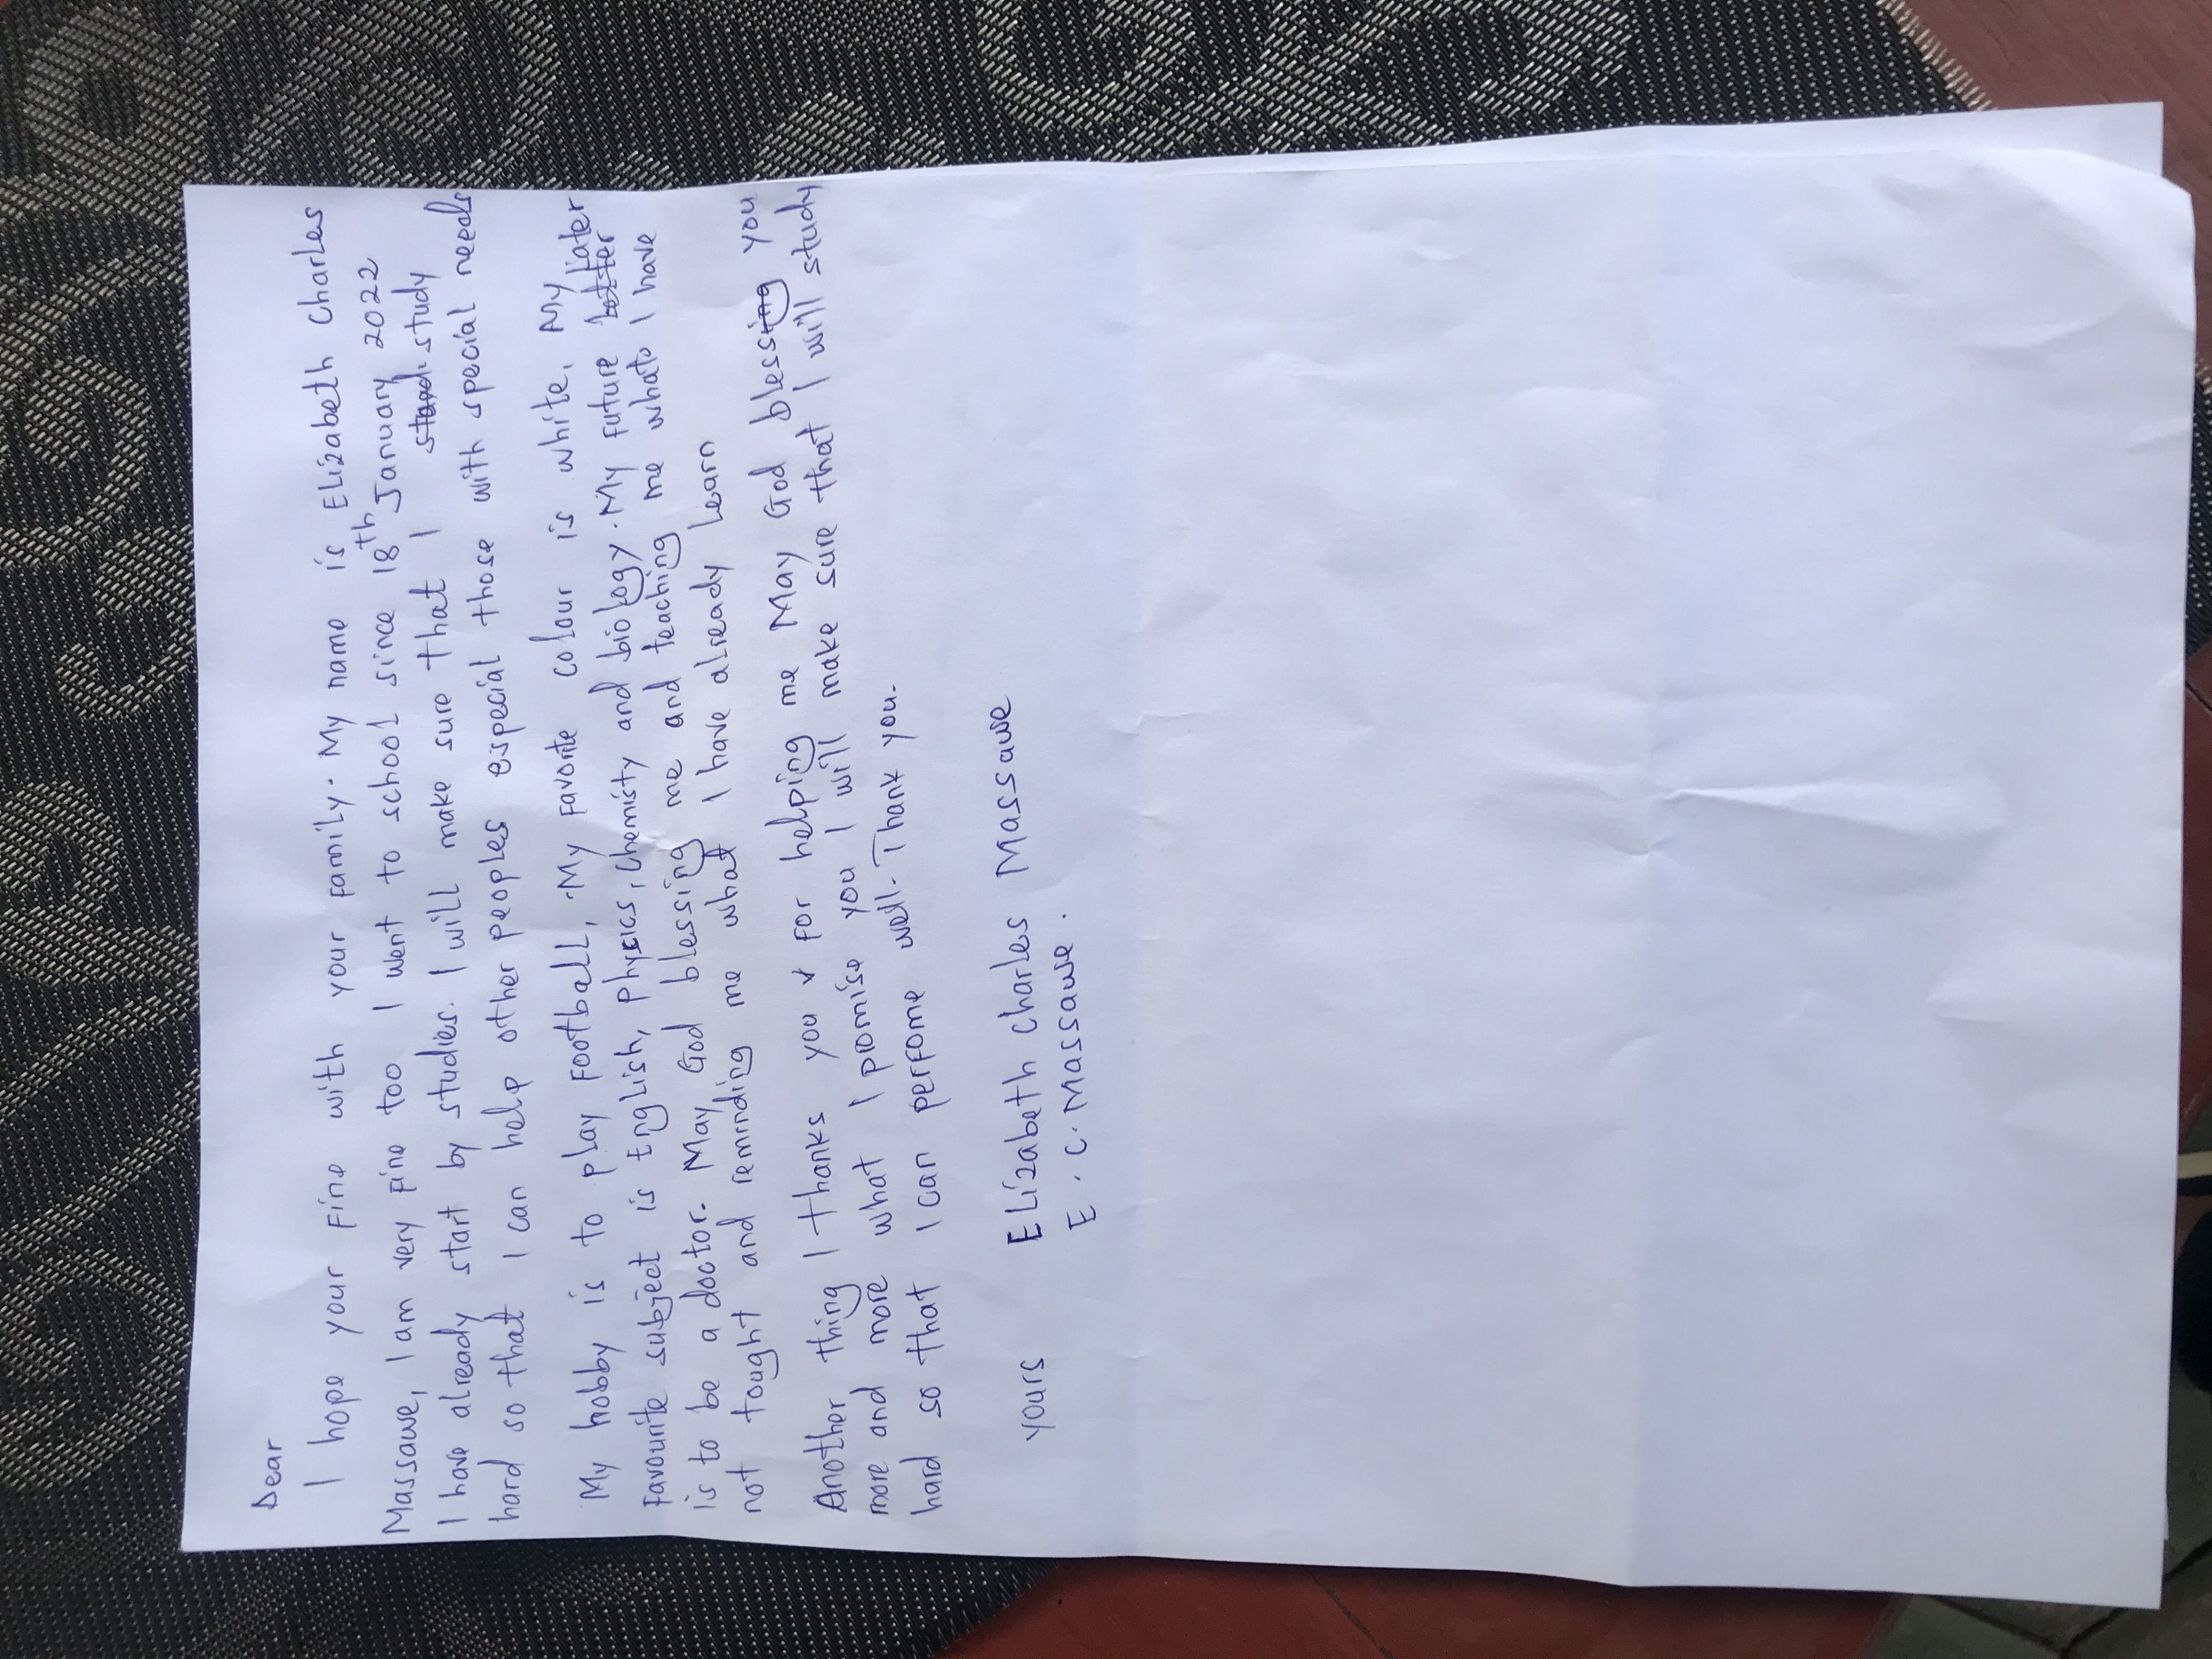 Dear
I hope your Fine with your Family. My name is Elizabeth Charles
Massawe, I am very fine too I went to school since 18th January 2022
I have already start by studies. I will make sure that I stand study
hard so that I can help other peoples especial those with special needs
My hobby is to play Football, My Favorite colour is white, My
Favourite subject is English, Physics, Chemisty and biology. My Future better later
is to be a doctor. May God blessing me and teaching me whats I have
not tought and reminding me what I have already learn
Another thing I thanks you for helping me May God blessing you
more and more what I promise you I will make sure that I will study
hard so that I can perfome well. Thank you.
Yours Elizabeth Charles Massawe
E.C.Massawe.